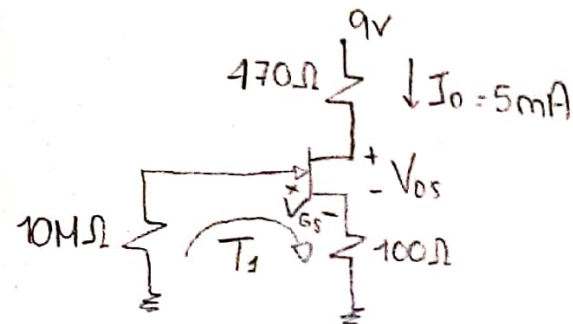 9V
470Ω
I0 = 5mA
+
- VDS
+
VGS-
10MΩ
T1
100Ω